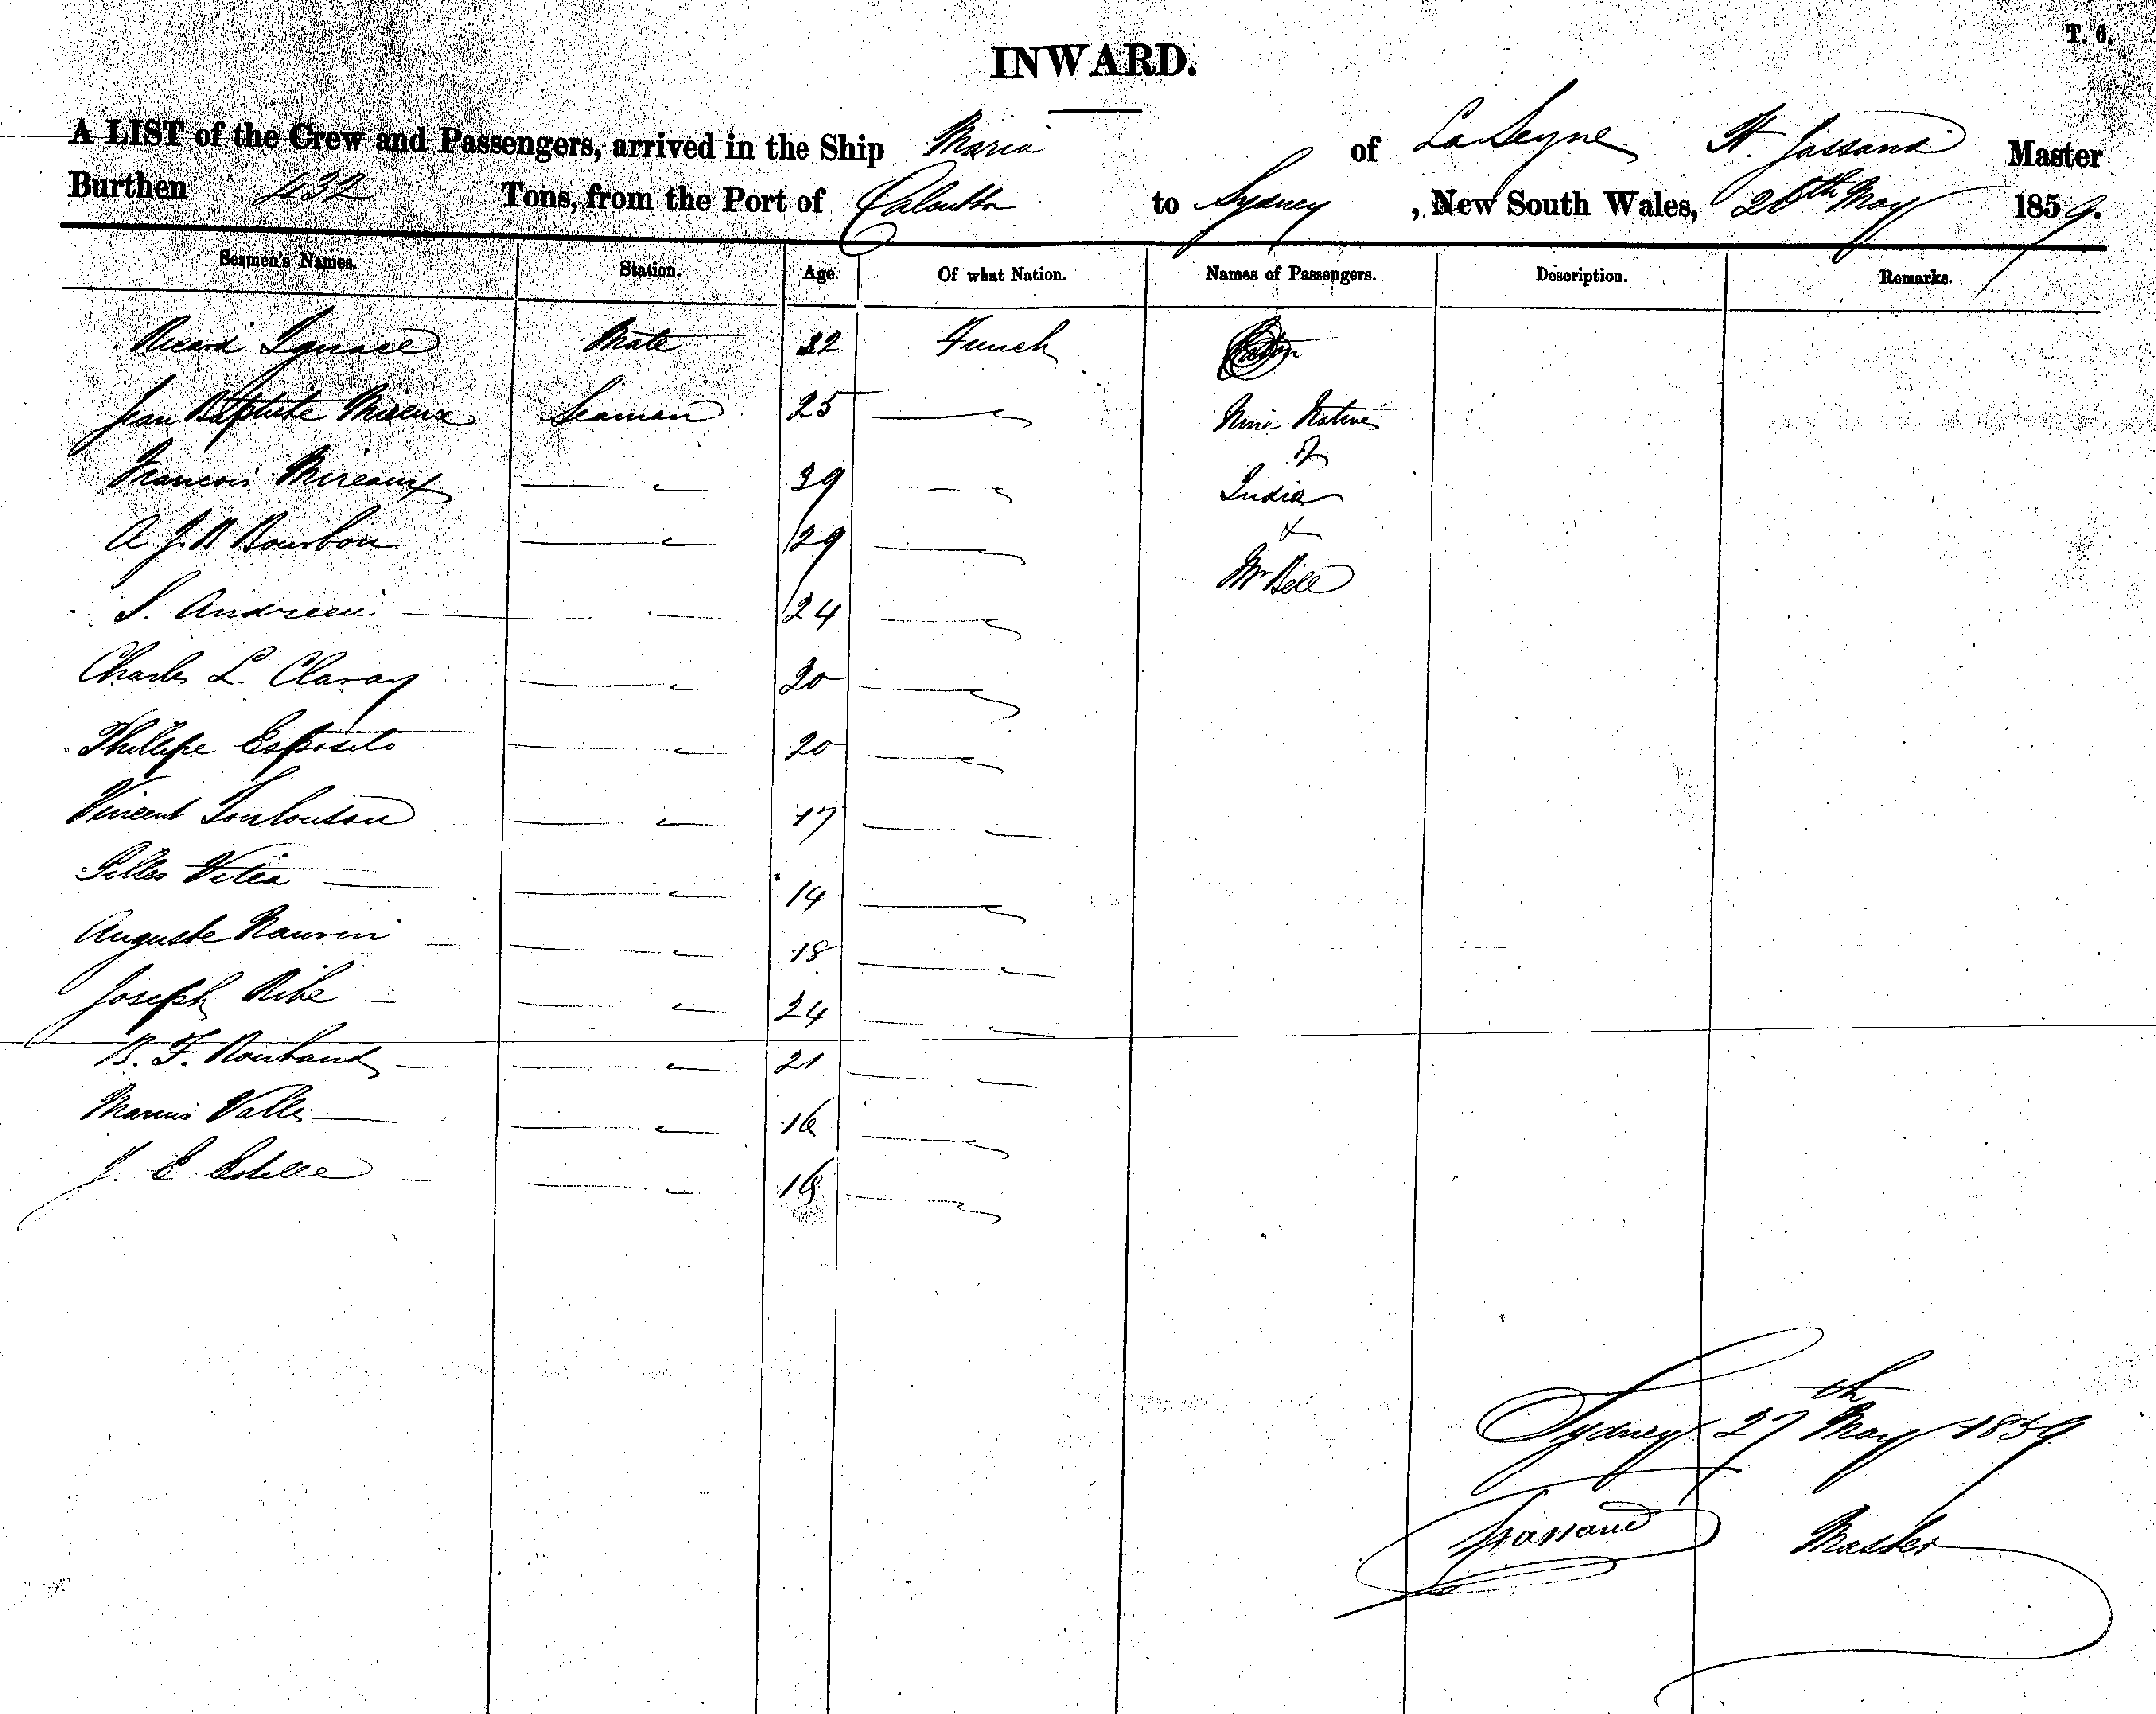 T. 6.
INWARD.
A LIST of the Crew and Passengers, arrived in the Ship Maria of La Seyne H. Jassand Master
Burthen 432 Tons, from the Port of Calcutta to Sydney, New South Wales, 26th May 1859.
Seamen's Names. Station. Age. Of what Nation. Names of Passengers. Description. Remarks.
Ricard Ignace Mate 32 French
Jean Baptiste Mireux Seaman 25 Nine Natives
of
Francois Mireaux 39 India
A J. B Bourbon 29 &
S. Andreeni 24 Mr Bell
Charles L. Clavary 20
Phillipe Esposito 20
Vincent 17
Gilles Vitea 14
Auguste 18
Joseph Ribe 24
B. F. Roubaud 21
Marius Valle 16
J. E. Estelle 16
Sydney 27th May 1859
Jassand Master